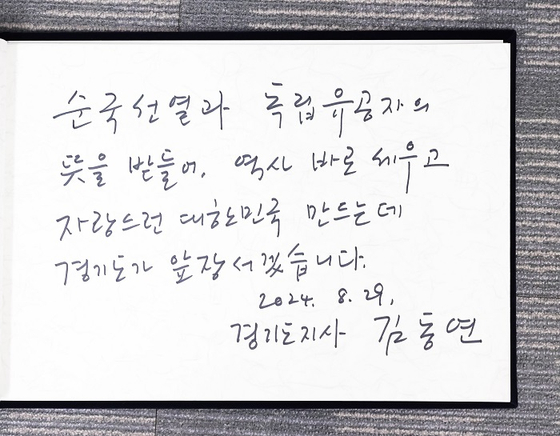 순국선열과 독립유공자의
뜻을 받들어, 역사 바로 세우고
자랑스런 대한민국 만드는데
경기도가 앞장서겠습니다.
2024. 8. 29.
경기도지사 김동연